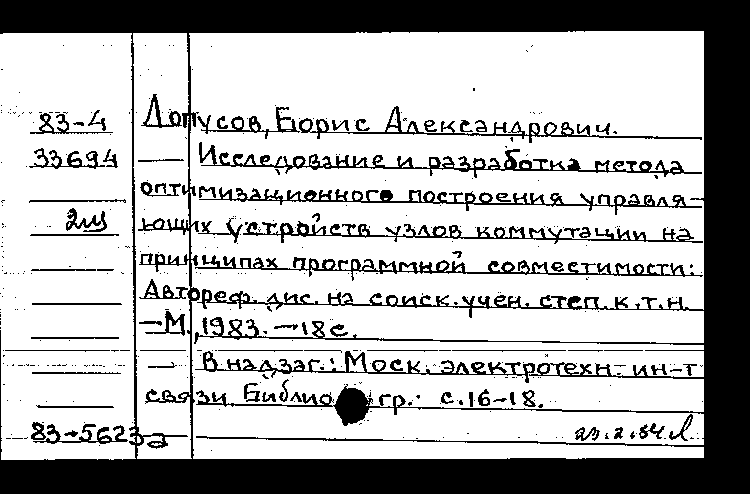 83-4 Допусов, Борис Александрович.
33694 — Исследование и разработка метода
оптимизационного построения управля-
ющих устройств узлов коммутации на
принципах программной совместимости:
Автореф. дис. на соиск. учен. степ. к.т.н.
—М., 1983. —18с.
— В надзаг.: Моск. электротехн. ин-т
связи Библиогр.: с.16-18.
83-5623а 23.2.84